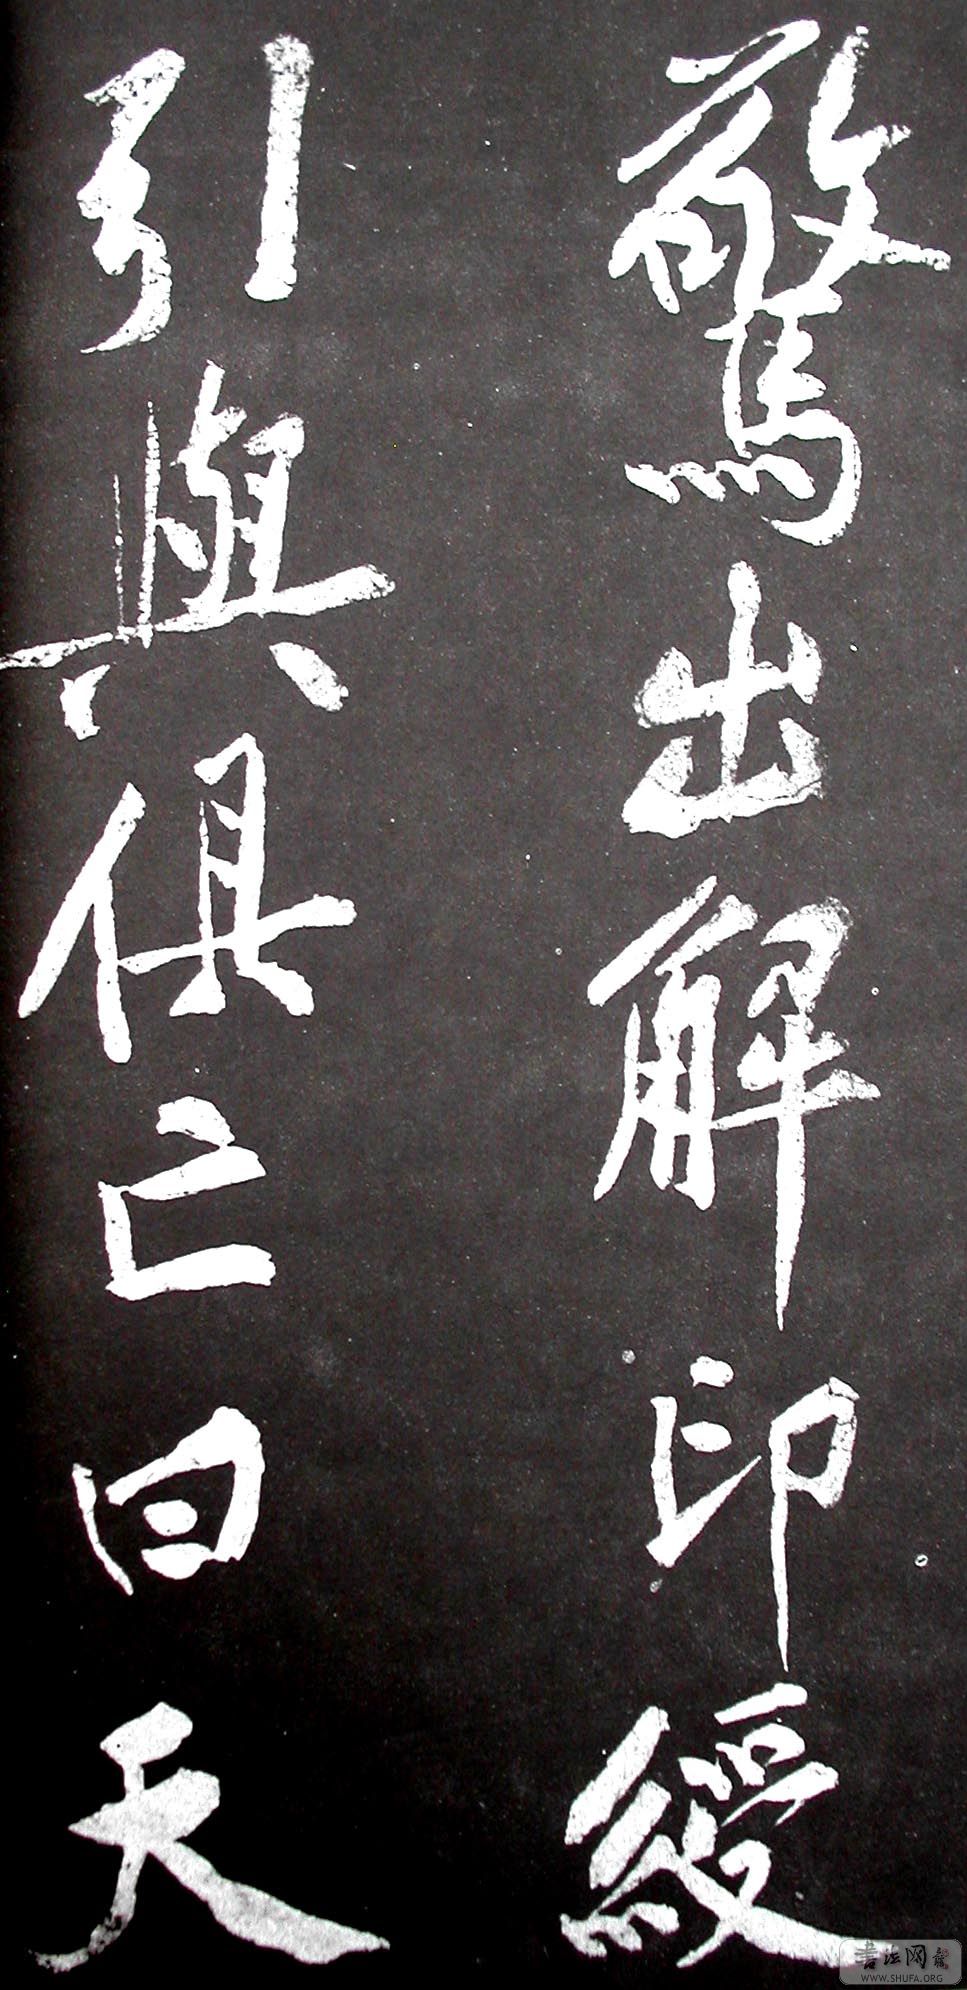 驚出解印綬
引與俱亡曰天
書法网
WWW.SHUFA.ORG